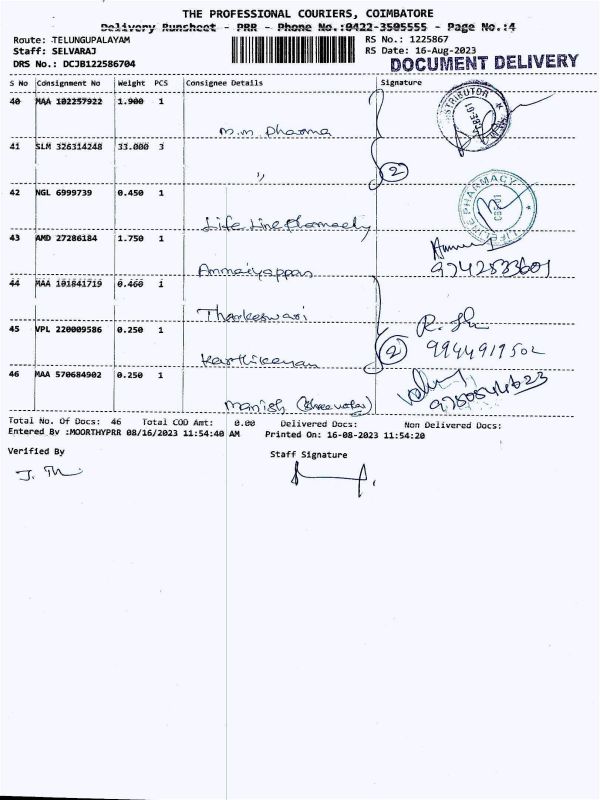 THE PROFESSIONAL COURIERS, COIMBATORE
Delivery Runsheet - PRR - Phone No.:0422-3505555 - Page No.:4
Route: TELUNGUPALAYAM RS No.: 1225867
Staff: SELVARAJ RS Date: 16-Aug-2023
DRS No.: DCJB122586704 DOCUMENT DELIVERY
S No Consignment No Weight PCS Consignee Details Signature
40 MAA 102257922 1.900 1
m.m pharma
41 SLM 326314248 33.000 3
,,
2
42 NGL 6999739 0.450 1
Life Line
43 AMD 27286184 1.750 1
Ammaiyappan
44 MAA 101841719 0.460 1
Thankeswari
45 VPL 220009586 0.250 1
9944919502
2
Karthikeyan
46 MAA 570684902 0.250 1
Manish
Total No. Of Docs: 46 Total COD Amt: 0.00 Delivered Docs: Non Delivered Docs:
Entered By :MOORTHYPRR 08/16/2023 11:54:40 AM Printed On: 16-08-2023 11:54:20
Verified By Staff Signature